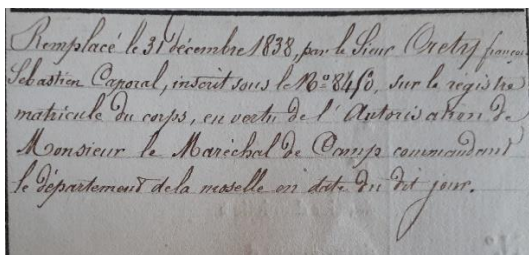 Remplacé le 31 décembre 1838, par le Sieur Cretry françois
Sébastien Caporal, inscrit sous le No 8450, sur le régistre
matricule du corps, en vertu de l'Autorisation de
Monsieur le Maréchal de Camp commandant
le département de la moselle en date du dit jour.